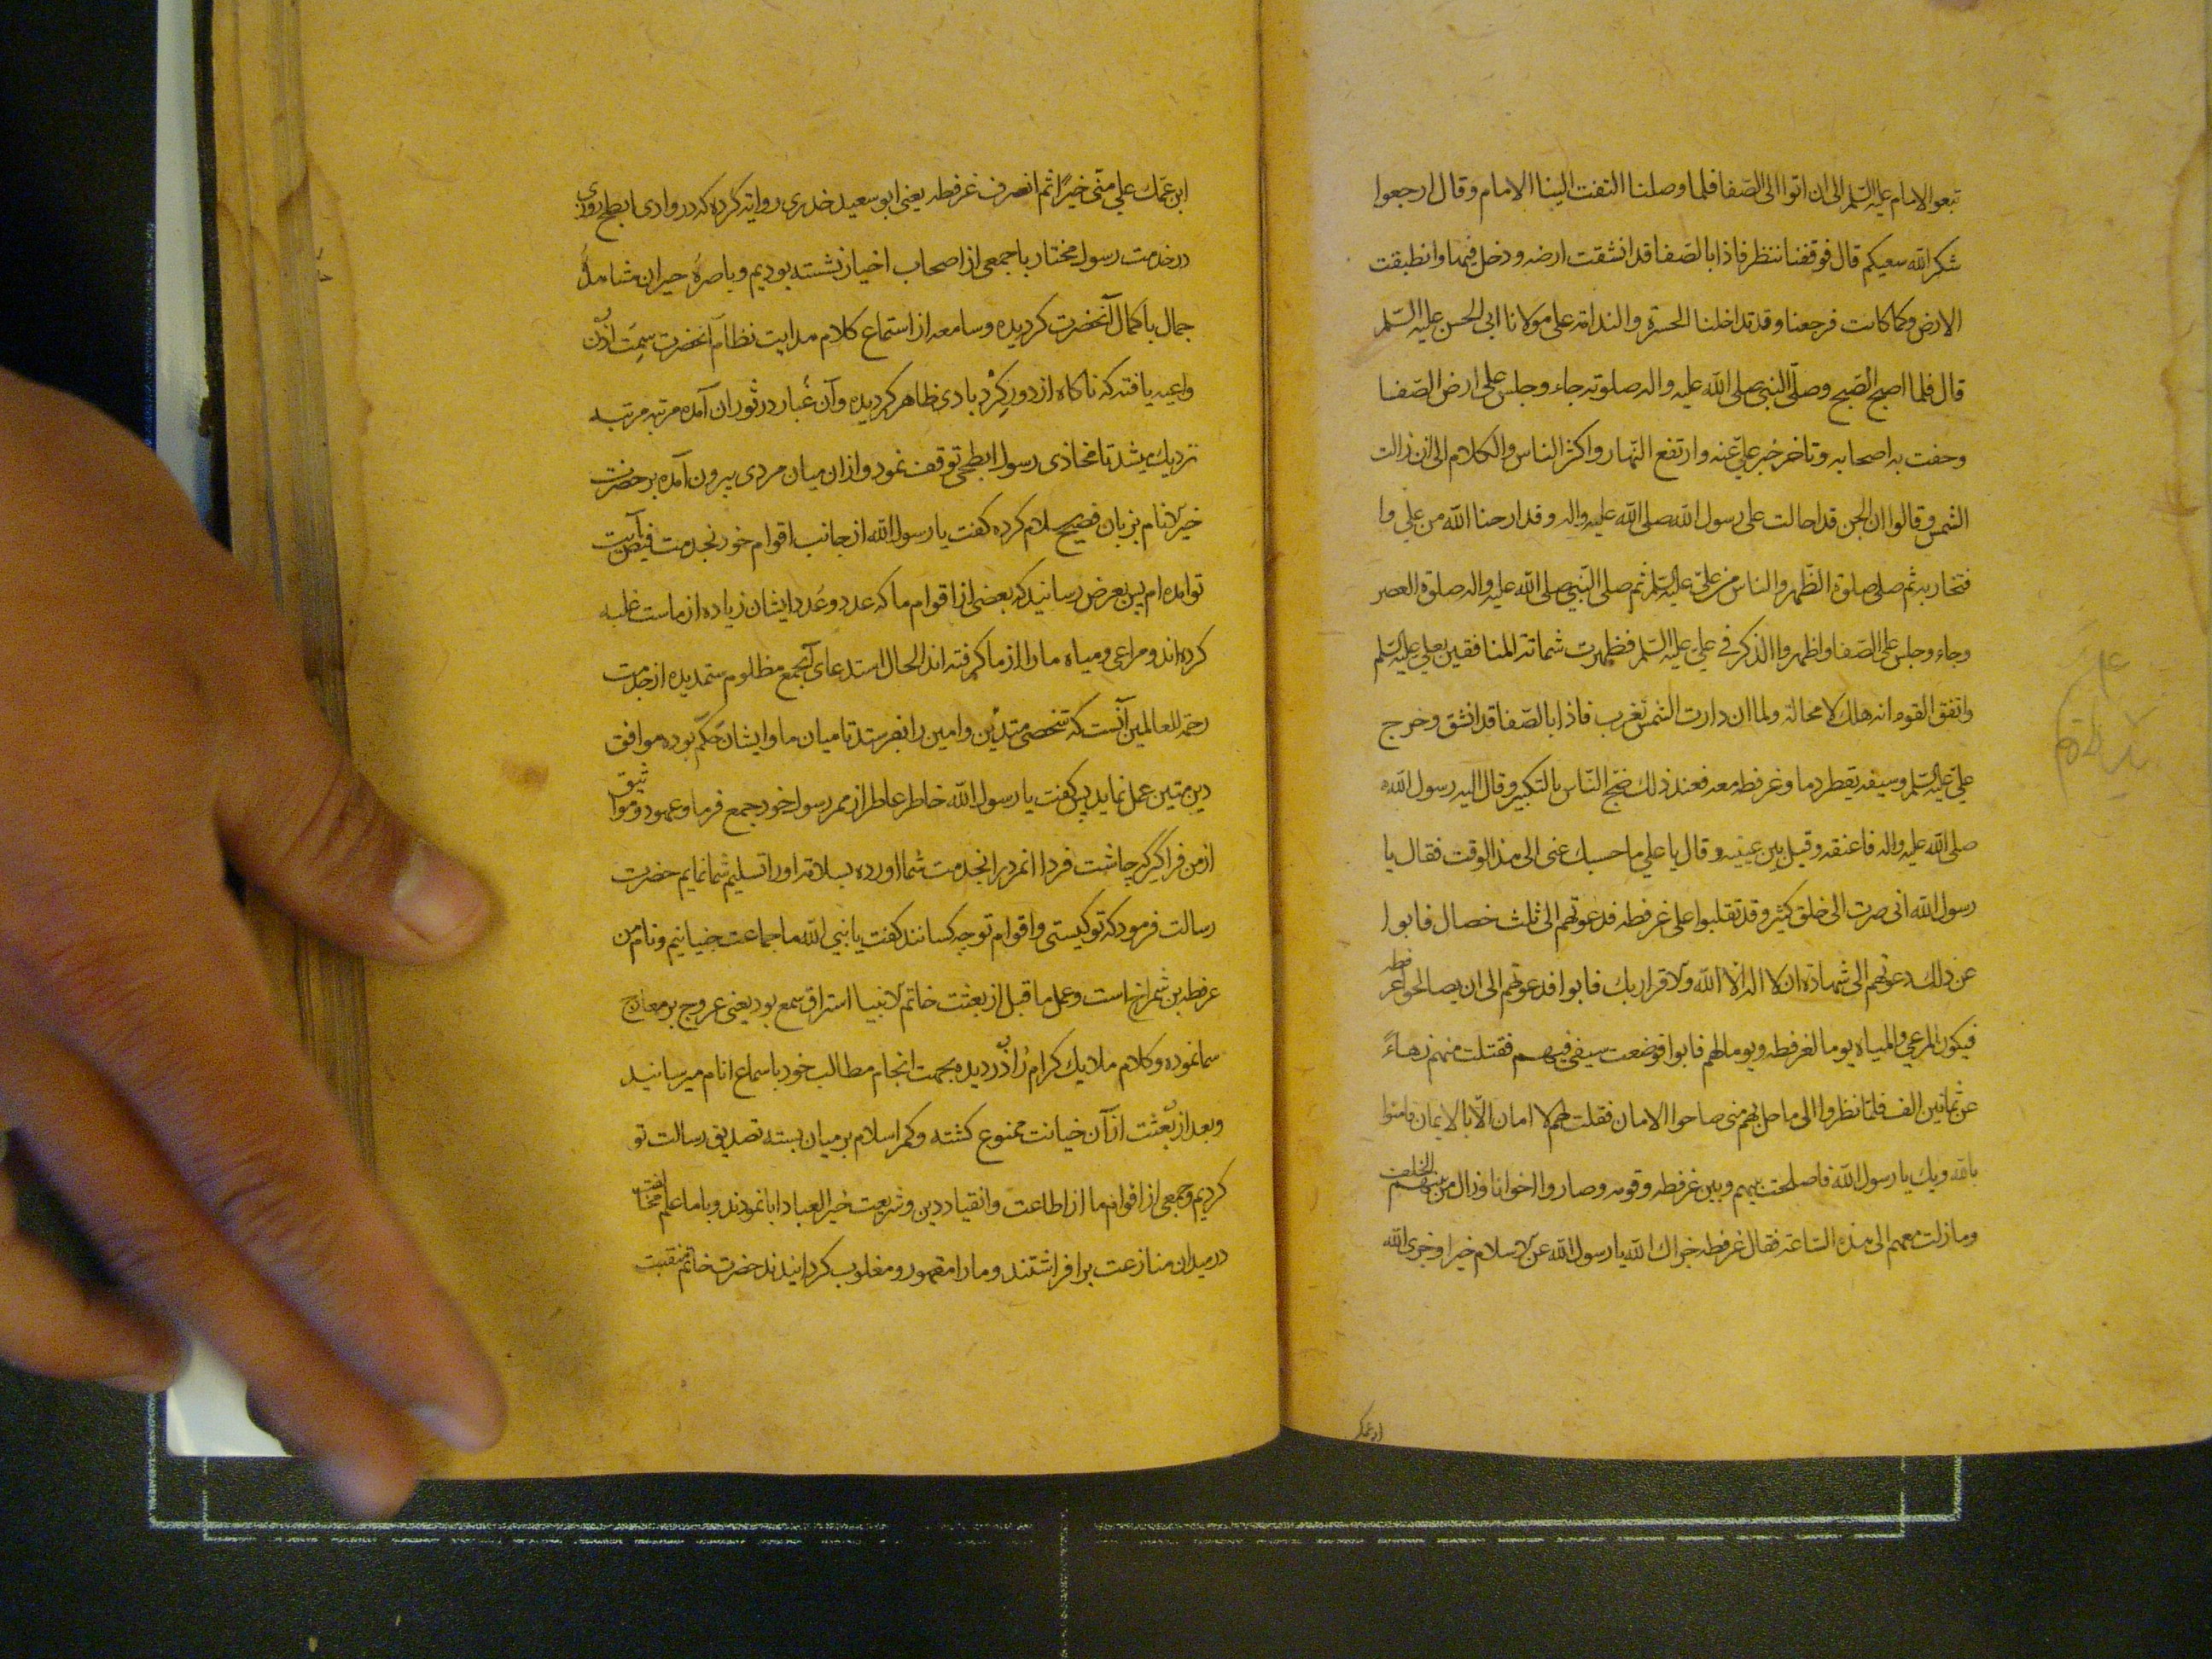 تبعوا الامام علیه السّلم الی ان اتوا الی الصّفا فلما وصلنا التفت الینا الامام و قال ارجعوا
شکر اللّه سعیکم قال فوقفنا ننتظر فاذا بالصّفا قد انشقت ارضه و دخل فیها و انطبقت
الارض و کما کانت فرجعنا و قد تداخلنا الحسرة و الندامة علی مولانا ابی الحسن علیه السّلم
قال فلما اصبح الصّبح و صلّی النبی صلی اللّه علیه و اله صلوته جاء و جلس علی ارض الصّفا
و حفت به اصحابه و تاخر خبر علیّ عنه و ارتفع النّهار و اکثر الناس و الکلام الی ان زالت
الشمس و قالوا ان الجن قد احالت علی رسول اللّه صلی اللّه علیه و اله و قد ارحنا اللّه من علی و ا
فتخار به ثم صلی صلوة الظّهر و الناس من علیّ علیه السّلم ثم صلی النّبی صلی اللّه علیه و اله صلوة العصر
و جاء و جلس علی الصّفا و اظهروا الذکر فی علی علیه السّلم فظهرت شماتة المنافقین بعلی علیه السّلم
و اتفق القوم انه هلک لا محالة و لما ان دارت الشمس تغرب فاذا بالصّفا قد انشق و خرج
علیّ علیه السّلم و سیفه یقطر دما و غرفطه معه فعند ذلک ضجّ النّاس بالتکبیر و قال الیه رسول اللّه
صلی اللّه علیه و اله فاعنقه و قبل بین عینیه و قال یا علی ما حسبک عنی الی هذا الوقت فقال یا
رسول اللّه انی صرت الی خلق کثیر و قد تقلبوا علی غرفطه فدعوتهم الی ثلث خصال فابوا
عن ذلک دعوتهم الی شهادة ان لا اله الّا اللّه و لاقرار بک فابوا فدعوتهم الی ان یصالحوا غرفطه
فیکون المرعی و المیاه یوما لغرفطه و یوما لهم فابوا فوضعت سیفی فیهم فقتلت منهم زهاءً
عن ثمانین الف فلمّا نظروا الی ما حل بهم منی صاحوا الامان فقلت لهم لا امان الّا بالایمان فامنوا
باللّه و بک یا رسول اللّه فاصلحت بینهم و بین غرفطه و قومه و صاروا اخوانا و زال من بینهم الخلف
و ما زلت معهم الی هذه السّاعة فقال غرفطه جزاک اللّه یا رسول اللّه عن الاسلام خیرا و جزی اللّه
ابن عمک
ابن عمّک علی منّی خیرًا ثم انصرف غرفطه یعنی ابو سعید خدری روایة کرده که در وادی ابطح روزی
در خدمت رسول مختار با جمعی از اصحاب اخیار نشسته بودیم و باصرهٔ حیران مشاهدهٔ
جمال باکمال آنحضرت کردیده و سامعه از استماع کلام هدایت نظام آنحضرت سمت اذن
واعیه یافته که ناکاه از دور کرد بادی ظاهر کردیده و آن غبار در ثوران آمده مرتبه مرتبه
نزدیک میشد تا محاذی رسول ابطحی توقف نمود و از ان میان مردی بیرون آمده بر حضرت
خیر الانام بزبان فصیح سلام کرده کفت یا رسول اللّه از جانب اقوام خود بخدمت فیض آیت
تو امده ام پس بعرض رسانید که بعضی از اقوام ما که عدد و عُدد ایشان زیاده از ماست غلبه
کرده اند و مراعی و میاه ما را از ما کرفته اند الحال استدعای آنجمع مظلوم ستمدیده از خدمت
رحمة للعالمین آنست که شخصی متدیّن و امین را بفرستد تا میان ما و ایشان حکم بوده موافق
دین متین عمل نماید پس کفت یا رسول اللّه خاطر عاطر از ممر رسول خود جمع فرما و عهود و مواثیق
از من فراکیر که چاشت فردا انمرد را بخدمت شما اورده بسلامة او را تسلیم شما نمایم حضرت
رسالت فرمود که تو کیستی و اقوام تو چه کسانند کفت یا نبی اللّه ما جماعت جنیانیم و نام من
عرفطه بن شمراخ است و عمل ما قبل از بعثت خاتم الانبیا استراق سمع بود یعنی عروج بر معارج
سما نموده و کلام ملایک کرام را دزدیده بجهت انجام مطالب خود باسماع انام میرسانید
و بعد از بعثت از آن خیانت ممنوع کشته و کمر اسلام بر میان بسته تصدیق رسالت تو
کردیم و جمعی از اقوام ما از اطاعت و انقیاد دین و شریعت خیر العباد ابا نمودند و با ما علم مخالفت
در میدان منازعت برافراشتند و ما را مقهور و مغلوب کردانیدند حضرت خاتم منقبت